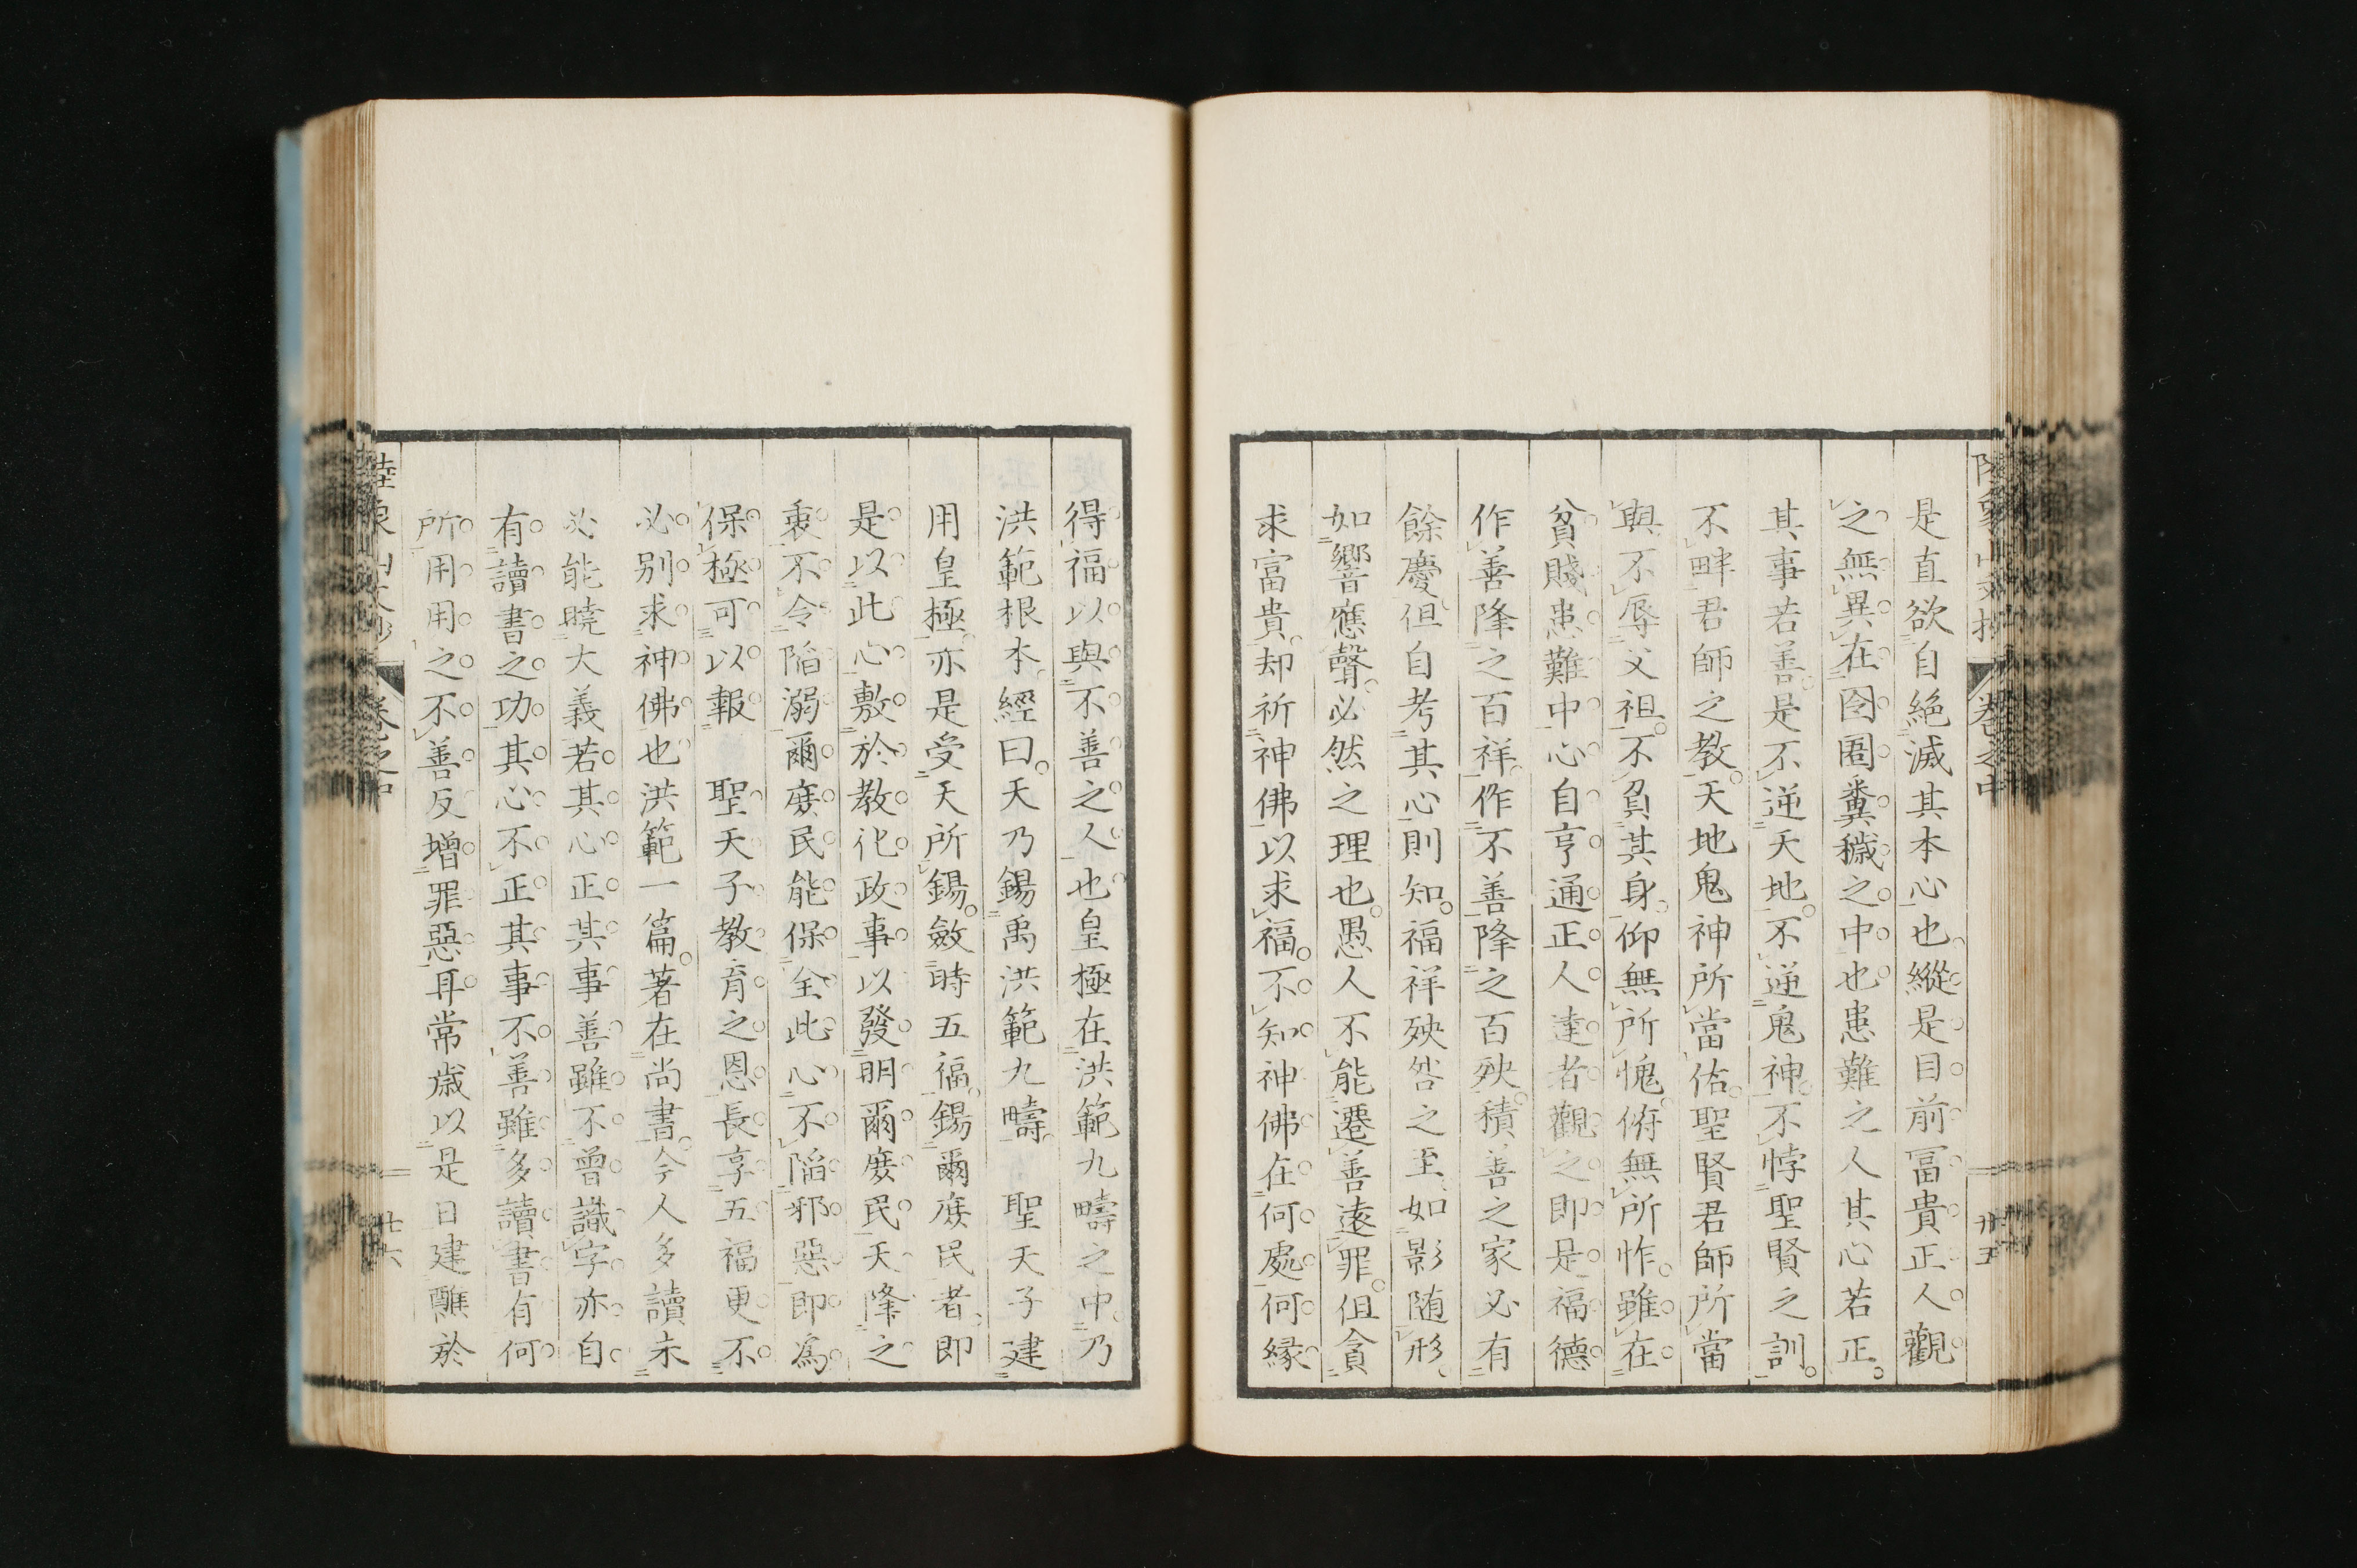 是直欲自絕滅其本心也縱是目前冨貴正人觀
之無異在囹圄糞穢之中也患難之人其心若正
其事若善是不逆天地不逆鬼神不悖聖賢之訓
不畔君師之教天地鬼神所當佑聖賢君師所當
與不辱父祖不負其身仰無所愧俯無所怍雖在
貧賤患難中心自亨通正人達者觀之即是福德
作善降之百祥作不善降之百殃積善之家必有
餘慶但自考其心則知福祥殃咎之至如影随形
如響應聲必然之理也愚人不能遷善遠罪但貪
求富貴却祈神佛以求福不知神佛在何處何縁
得福以與不善之人也皇極在洪範九疇之中乃
洪範根本經曰天乃錫禹洪範九疇 聖天子建
用皇極亦是受天所錫斂時五福錫爾庶民者即
是以此心敷於教化政事以發明爾庶民天降之
衷不令陷溺爾庶民能保全此心不陷邪惡即為
保極可以報 聖天子教育之恩長享五福更不
必别求神佛也洪範一篇著在尚書今人多讀未
必能曉大義若其心正其事善雖不曾識字亦自
有讀書之功其心不正其事不善雖多讀書有何
所用用之不善反增罪惡耳常歳以是日建醮於
卷之中
廿六